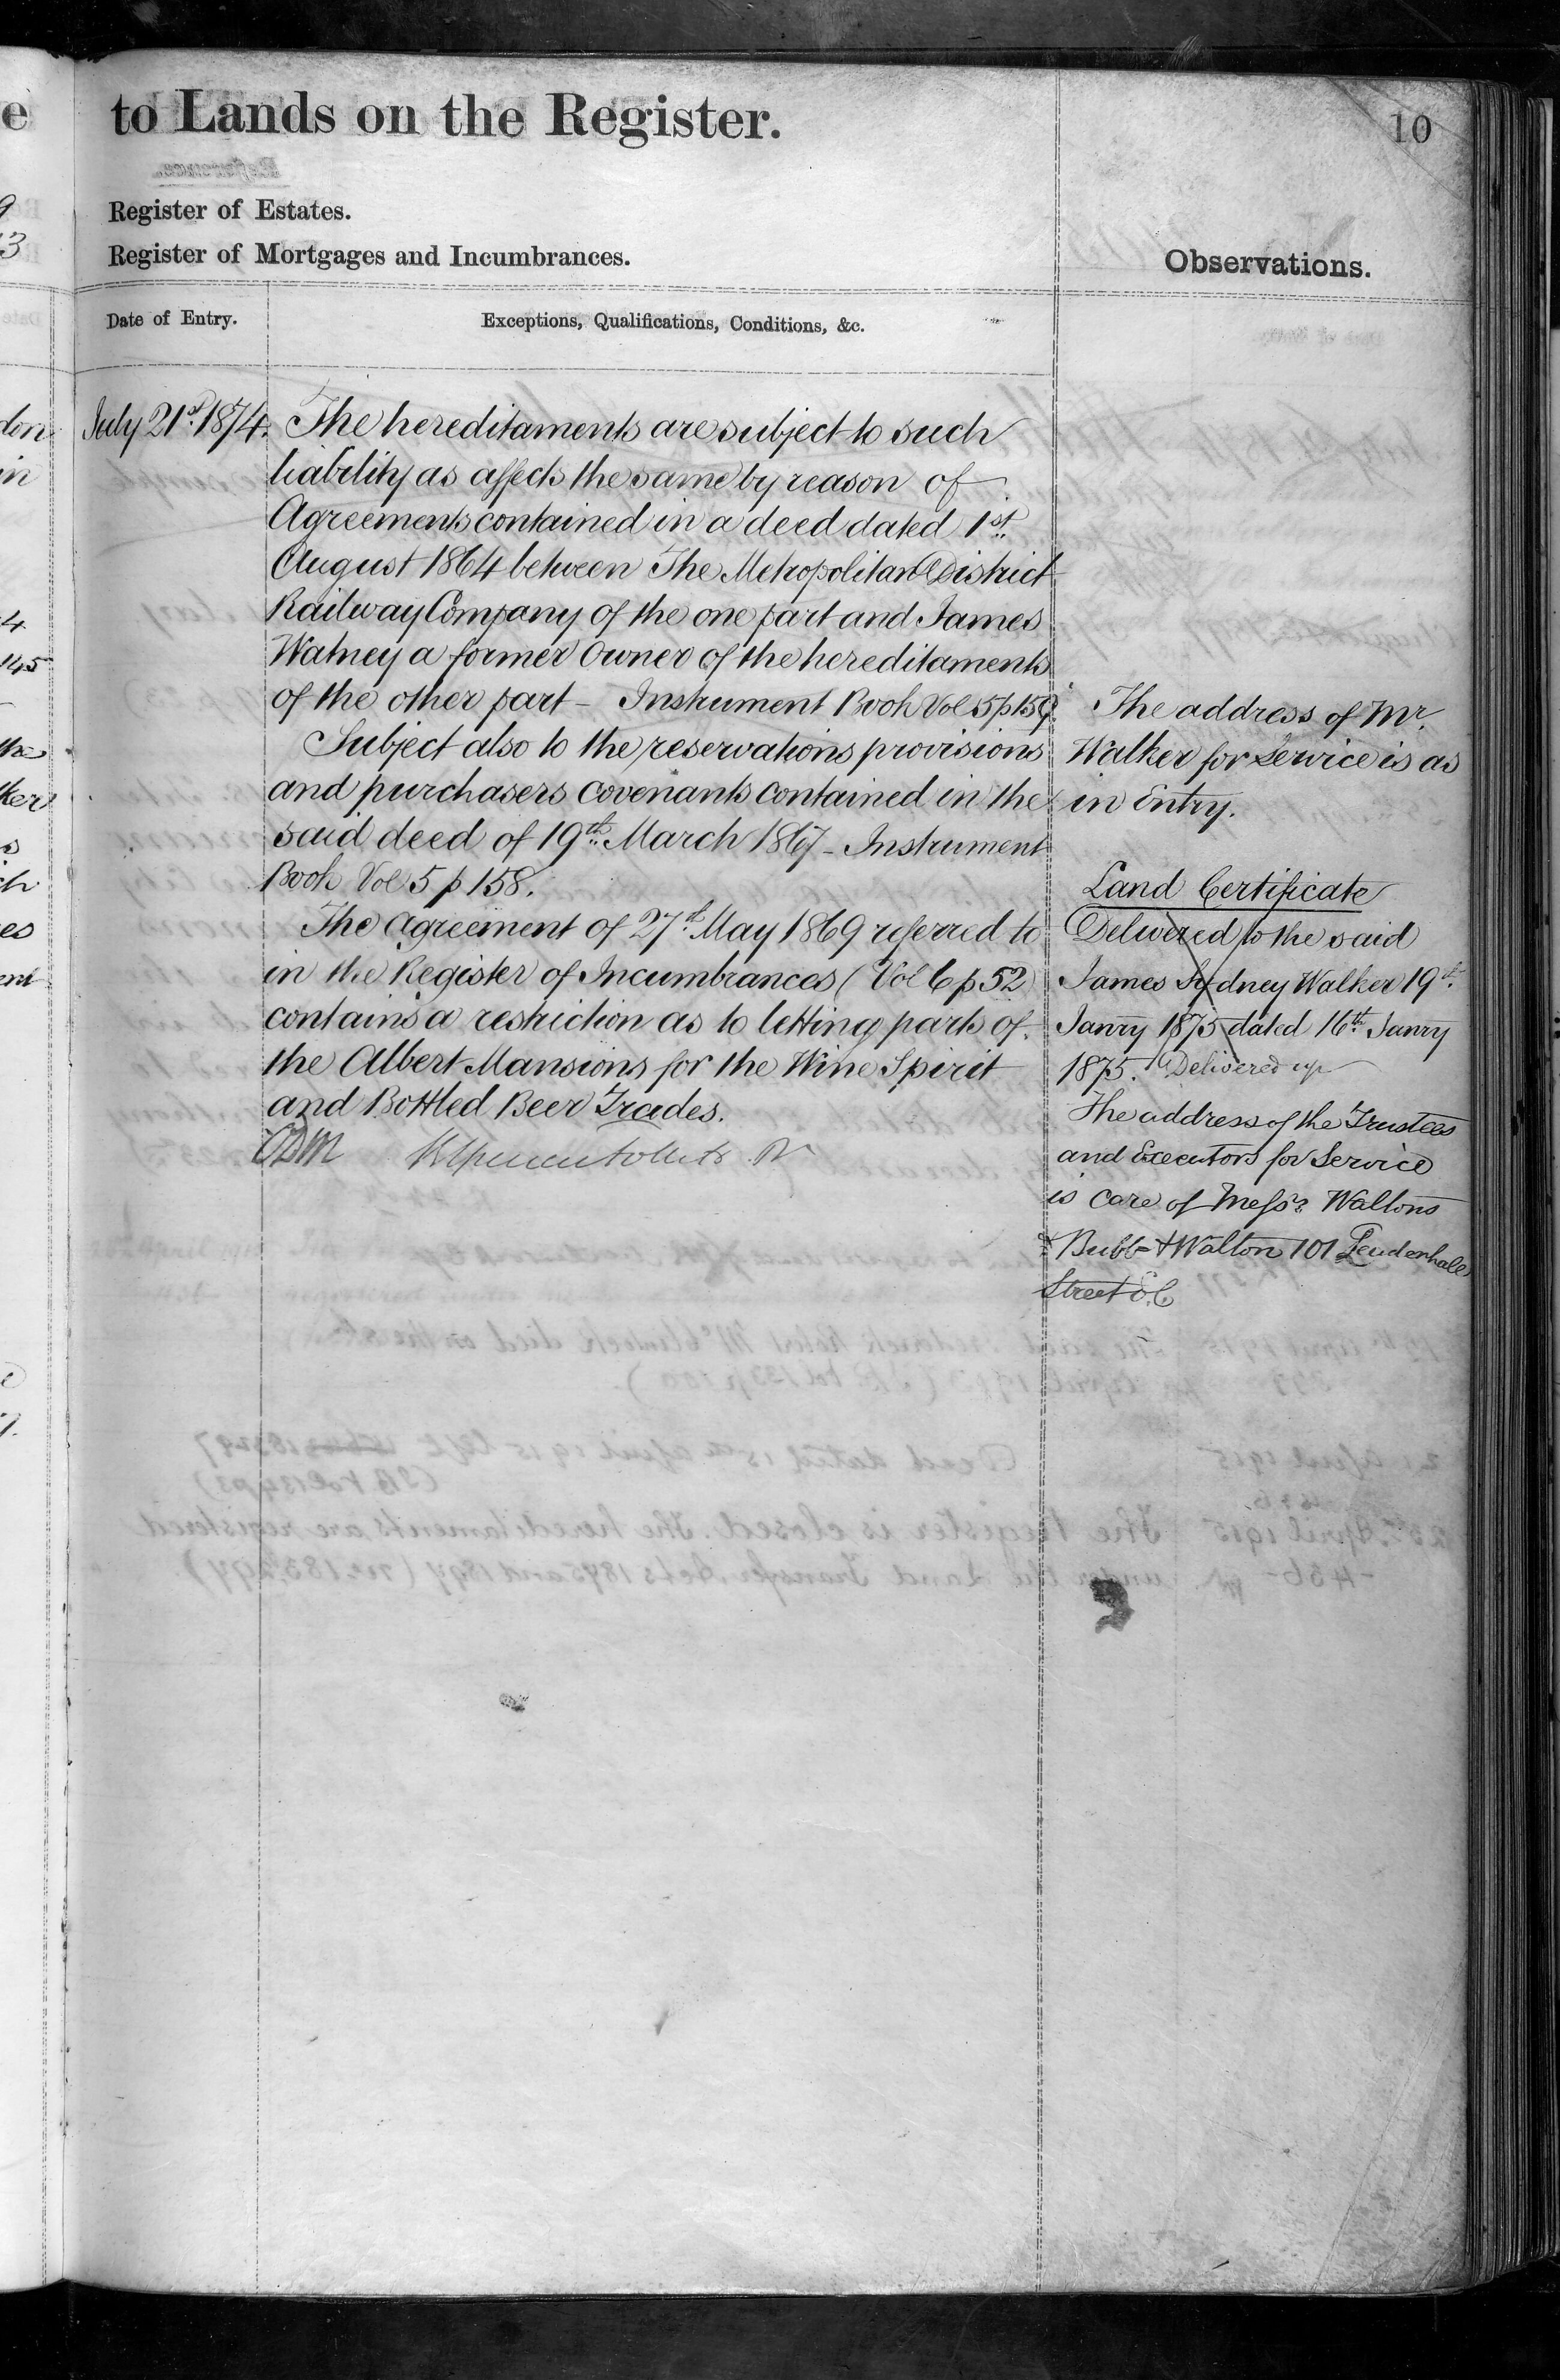 to Lands on the Register.
10
Register of Estates.
Register of Mortgages and Incumbrances.
Observations.
Date of Entry.
Exceptions, Qualifications, Conditions, &c.
July 21st 1874.
The hereditaments are subject to such
liability as affects the same by reason of
Agreements contained in a deed dated 1st
August 1864 between The Metropolitan District
Railway Company of the one part and James
Watney a former Owner of the hereditaments
of the other part – Instrument Book Vol 5 p 159.
Subject also to the reservations provisions
and purchasers covenants contained in the
said deed of 19th March 1867 – Instrument
Book Vol 5 p 158.
The agreement of 27th May 1869 referred to
in the Register of Incumbrances (Vol 6 p 52)
contains a restriction as to letting parts of
the Albert Mansions for the Wine Spirit
and Bottled Beer Trades.
The address of Mr.
Walker for Service is as
in Entry.
Land Certificate
Delivered to the said
James Sydney Walker 19th
Janry 1875 dated 16th Janry
1875. Delivered up
The address of the Trustees
and Executors for Service
is care of Messrs Waltons
Bubb & Walton 101 Leadenhall
Street E.C